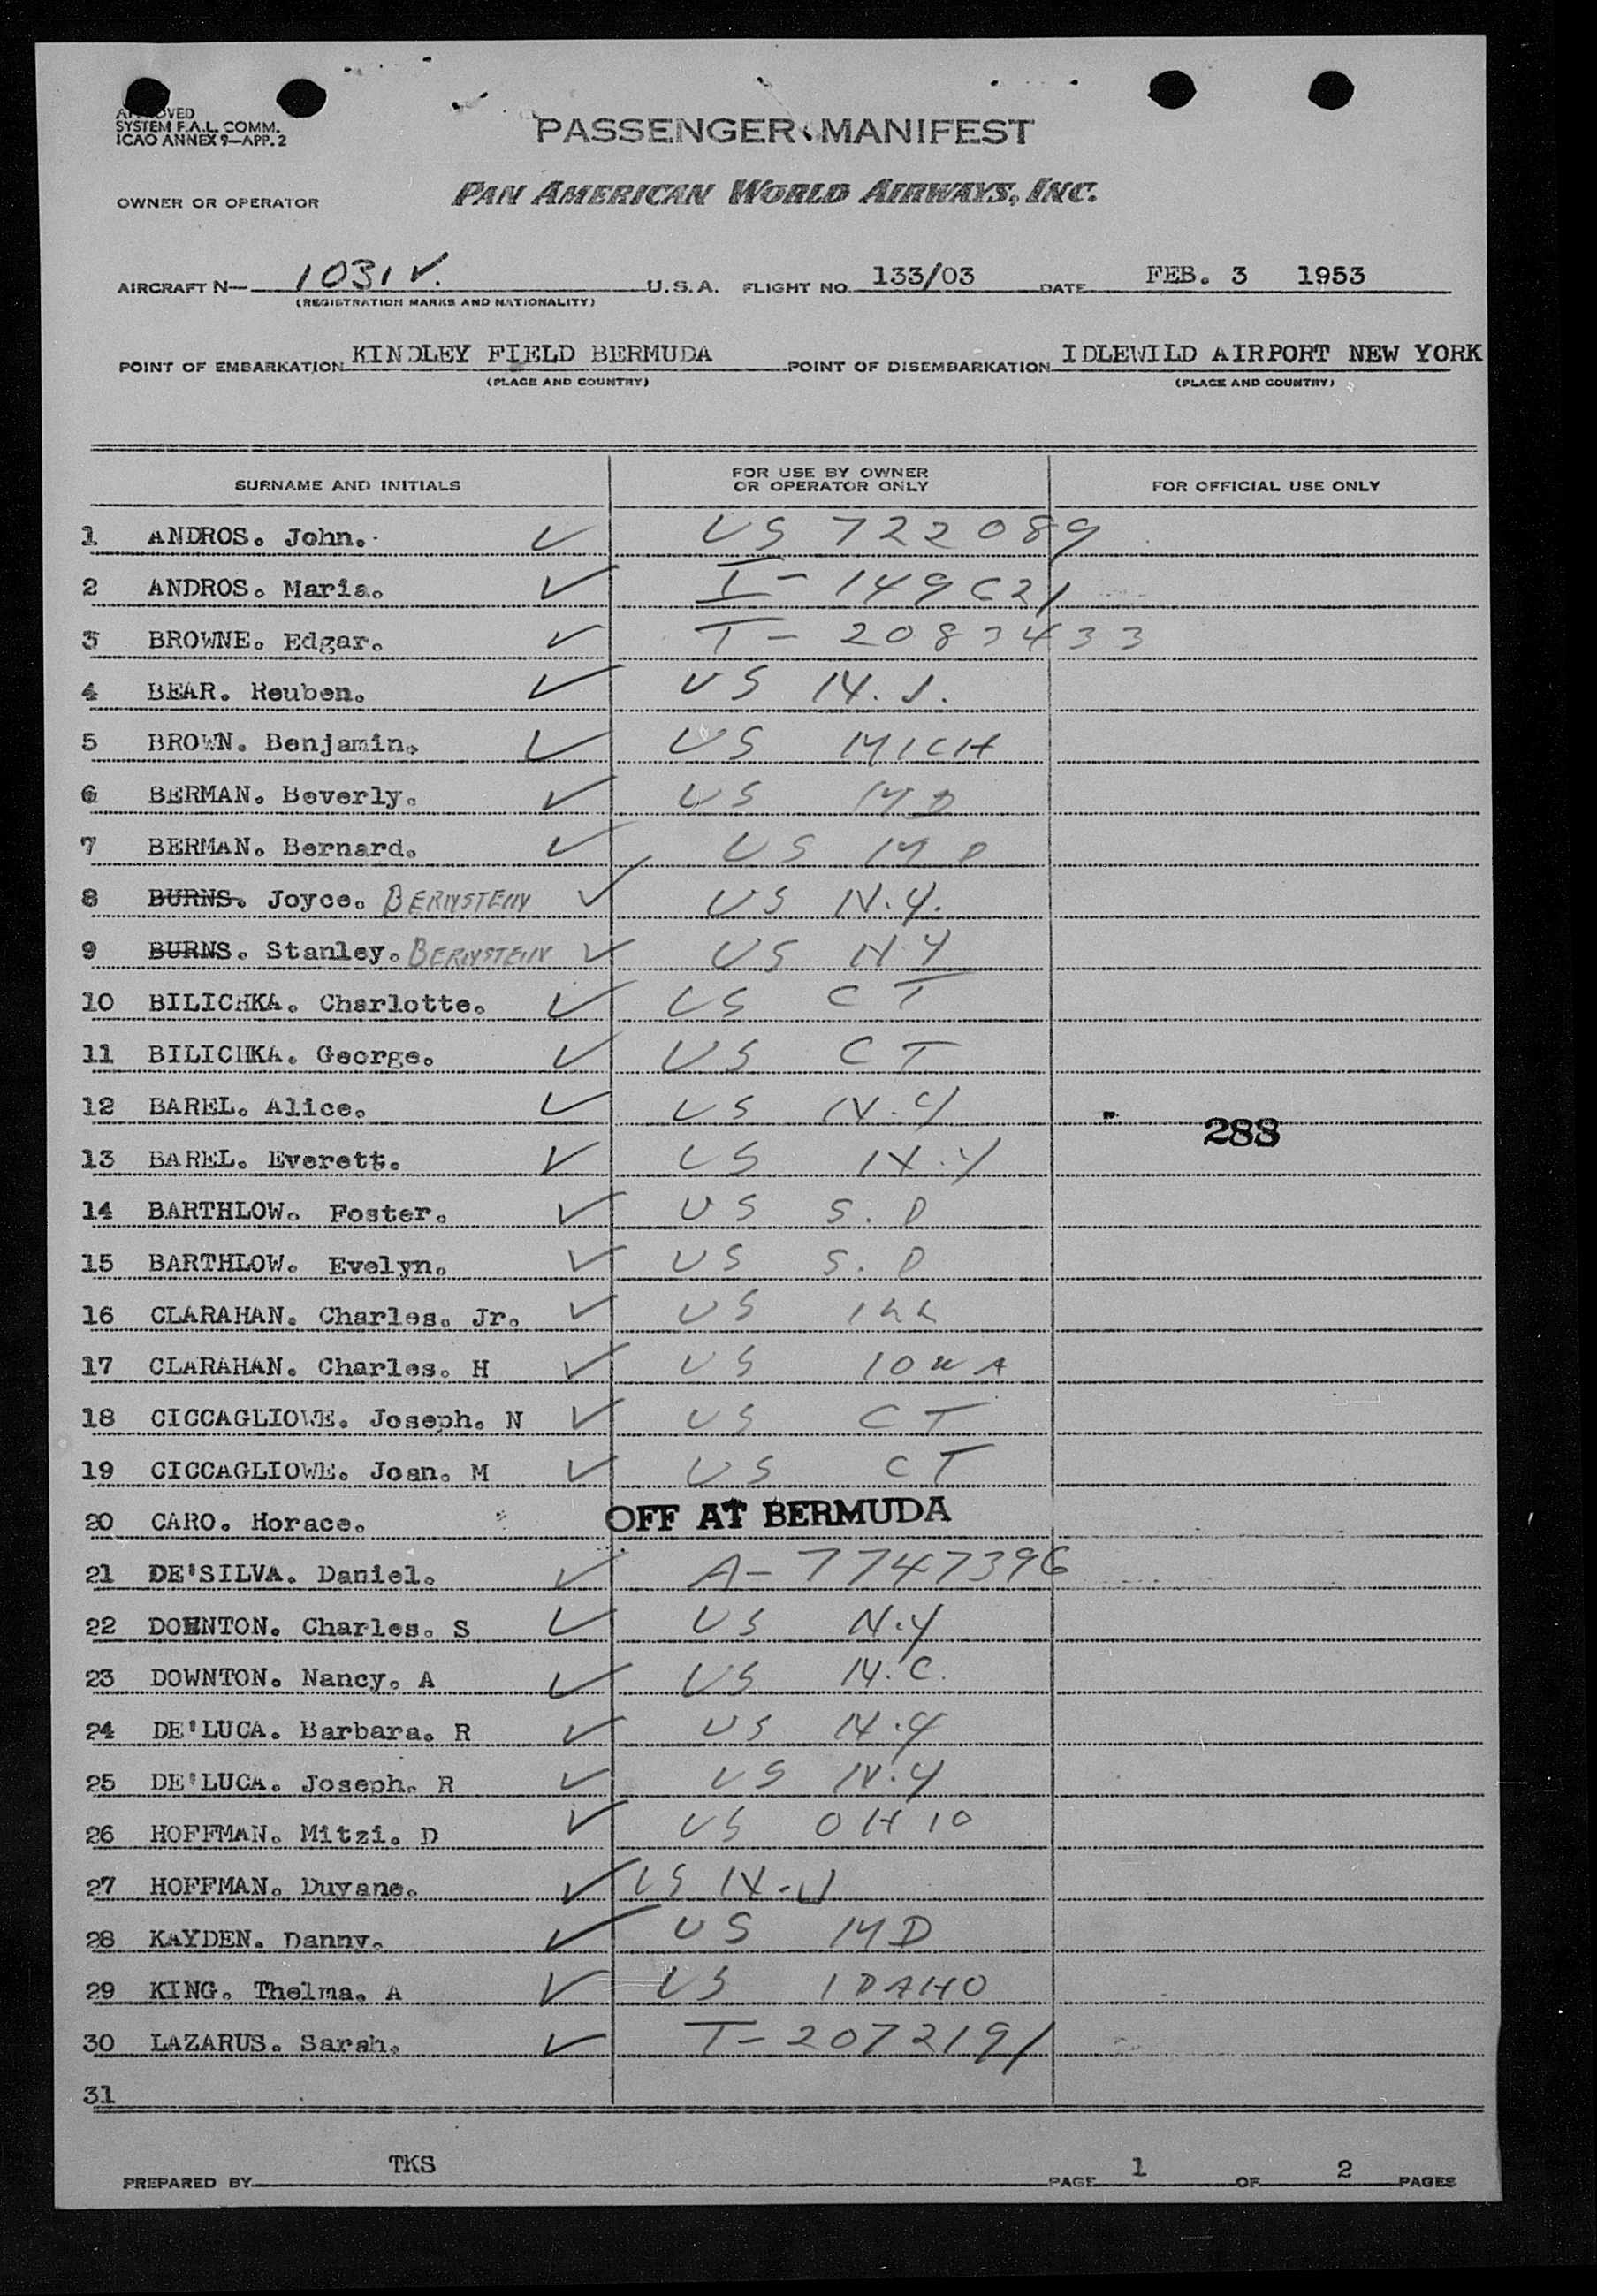 APPROVED
SYSTEM F.A.L. COMM.
ICAO ANNEX 9—APP. 2
PASSENGER MANIFEST
OWNER OR OPERATOR PAN AMERICAN WORLD AIRWAYS, INC.
AIRCRAFT N— 1031V. U.S.A. FLIGHT NO. 133/03 DATE FEB. 3 1953
(REGISTRATION MARKS AND NATIONALITY)
POINT OF EMBARKATION KINDLEY FIELD BERMUDA POINT OF DISEMBARKATION IDLEWILD AIRPORT NEW YORK
(PLACE AND COUNTRY) (PLACE AND COUNTRY)
SURNAME AND INITIALS FOR USE BY OWNER OR OPERATOR ONLY FOR OFFICIAL USE ONLY
1 ANDROS. John. ✓ US 722089
2 ANDROS. Maria. ✓ I- 149C21
3 BROWNE. Edgar. ✓ T- 2083433
4 BEAR. Reuben. ✓ US N.J.
5 BROWN. Benjamin. ✓ US MICH
6 BERMAN. Beverly. ✓ US MD
7 BERMAN. Bernard. ✓ US MD
8 BURNS. Joyce. BERNSTEIN ✓ US N.Y.
9 BURNS. Stanley. BERNSTEIN ✓ US N.Y
10 BILICHKA. Charlotte. ✓ US CT
11 BILICHKA. George. ✓ US CT
12 BAREL. Alice. ✓ US N.Y
283
13 BAREL. Everett. ✓ US N.Y
14 BARTHLOW. Foster. ✓ US S.D
15 BARTHLOW. Evelyn. ✓ US S.D
16 CLARAHAN. Charles. Jr. ✓ US ILL
17 CLARAHAN. Charles. H ✓ US IOWA
18 CICCAGLIOWE. Joseph. N ✓ US CT
19 CICCAGLIOWE. Joan. M ✓ US CT
20 CARO. Horace. OFF AT BERMUDA
21 DE'SILVA. Daniel. ✓ A- 7747396
22 DOWNTON. Charles. S ✓ US N.Y
23 DOWNTON. Nancy. A ✓ US N.C.
24 DE'LUCA. Barbara. R ✓ US N.Y
25 DE'LUCA. Joseph. R ✓ US N.Y
26 HOFFMAN. Mitzi. D ✓ US OHIO
27 HOFFMAN. Duyane. ✓ US N.J
28 KAYDEN. Danny. ✓ US MD
29 KING. Thelma. A ✓ US IDAHO
30 LAZARUS. Sarah. ✓ T- 2072191
31
PREPARED BY TKS PAGE 1 OF 2 PAGES